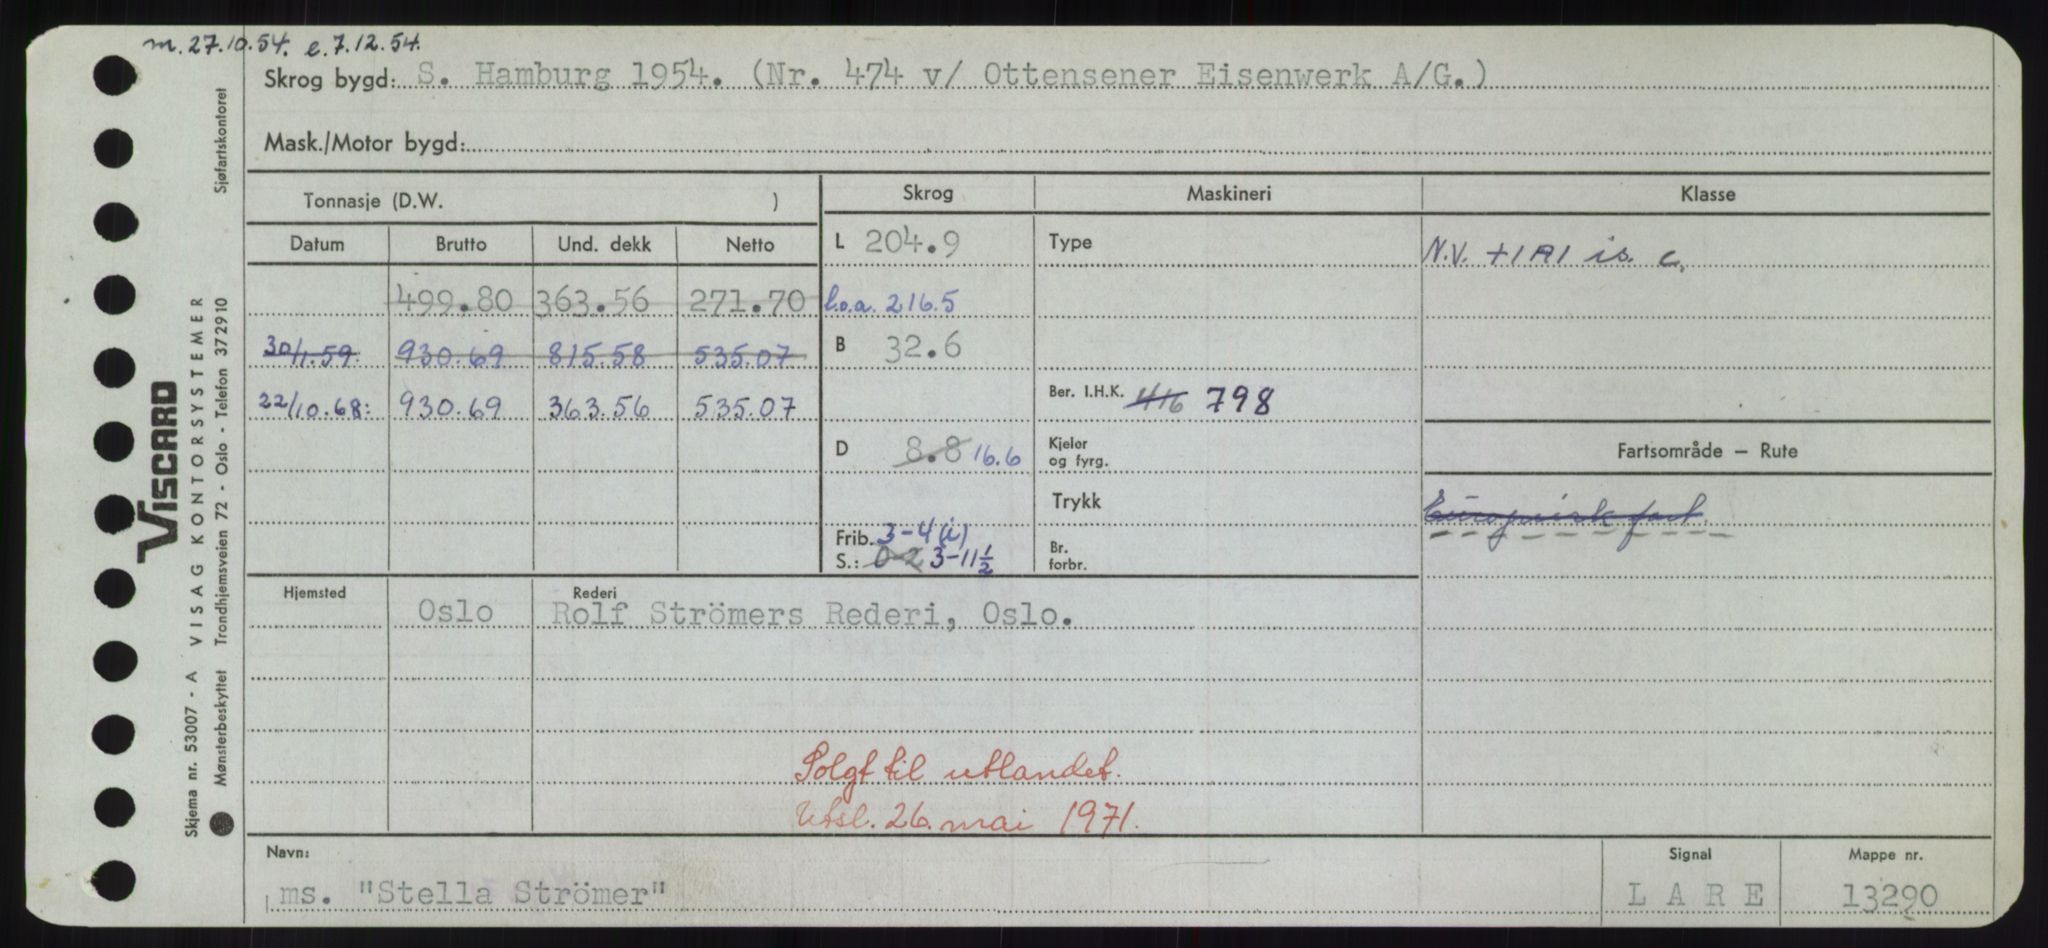 m. 27.10.54. e. 7.12.54.
Skrog bygd: S. Hamburg 1954. (Nr. 474 v/ Ottensener Eisenwerk A/G.)
Mask./Motor bygd:
Tonnasje (D.W. )
Skrog Maskineri Klasse
Datum Brutto Und. dekk Netto
L 204.9 Type N.V. +1A1 is. c.
499.80 363.56 271.70 l.o.a. 216.5
30/1.59. 930.69 815.58 535.07 B 32.6
22/10.68: 930.69 363.56 535.07 Ber. I.H.K. 416 798
D 8.8 16.6 Kjeler og fyrg. Fartsområde – Rute
Trykk Europeisk fart
Frib. 3-4 (i)
S.: 0-2 3-11½ Br. forbr.
Hjemsted Oslo Rederi Rolf Strömers Rederi, Oslo.
Solgt til utlandet.
Utsl. 26. mai 1971.
Navn: Signal Mappe nr.
ms. "Stella Strömer" LARE 13290
Skjema nr. 53007 - A VISAG KONTORSYSTEMER
VISCARD
Mønsterbeskyttet Trondhjemsveien 72 - Oslo - Telefon 372910 Sjøfartskontoret